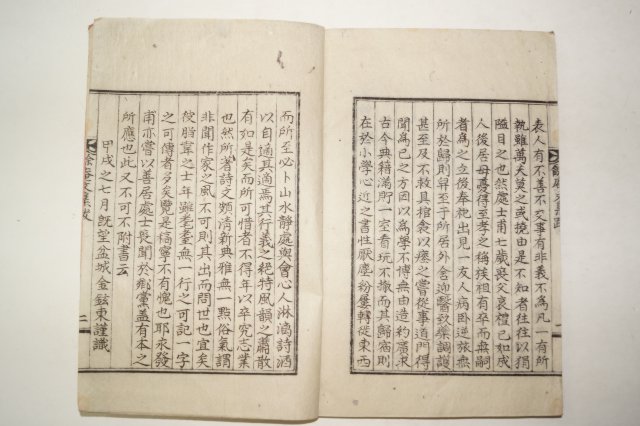 表人有不善不交事有非義不為凡一有所
執雖萬夫莫之或撓由是不知者往往以狷
隘目之也然處士甫七歲喪父哀禮已如成
人後居母憂得至孝之稱族祖有卒而無嗣
者為之立後奉祀出見一友人病臥逆旅無
所於歸則舁至于所居外舍迎醫設藥調護
甚至及不救具棺衾以瘞之嘗從事道門得
聞為己之方因以為學不博無由造約廣求
古今典籍滿貯一室看玩不撤而其歸宿則
在於小學心近之書性厭塵紛屢轉從東西
而所至必卜山水静處與會心人淋漓詩酒
以自適其適焉其行義之絶特風韻之蕭散
有如是矣而所可惜者不得年以卒究志業
也然所著詩文頗清新典雅無一點俗氣謂
非聞作家之風不可則其出而問世也宜矣
從腔寧之士年雖耄耋無一行之可記一字
之可傳者多矣覽是稿寧不有愧也耶永發
甫亦嘗以善居處士長聞於鄉黨盖有本之
所應也此又不可不附書云
甲戌之七月旣望盆城金鉉東謹識
二